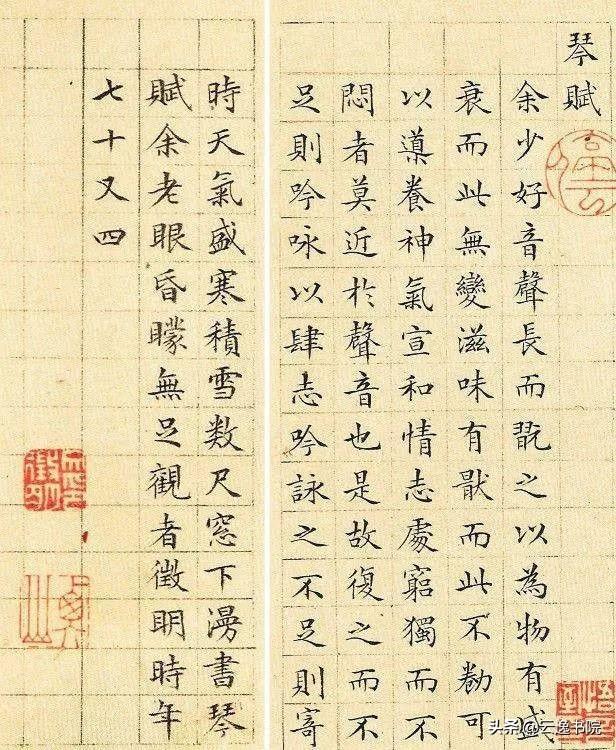 琴賦
余少好音聲長而翫之以為物有盛
衰而此無變滋味有猒而此不勌可
以導養神氣宣和情志處窮獨而不
悶者莫近於聲音也是故復之而不
足則吟咏以肆志吟詠之不足則寄
時天氣盛寒積雪数尺窓下漫書琴
賦余老眼昏矇無足觀者徵明時年
七十又四
停雲
头条 @云逸书院